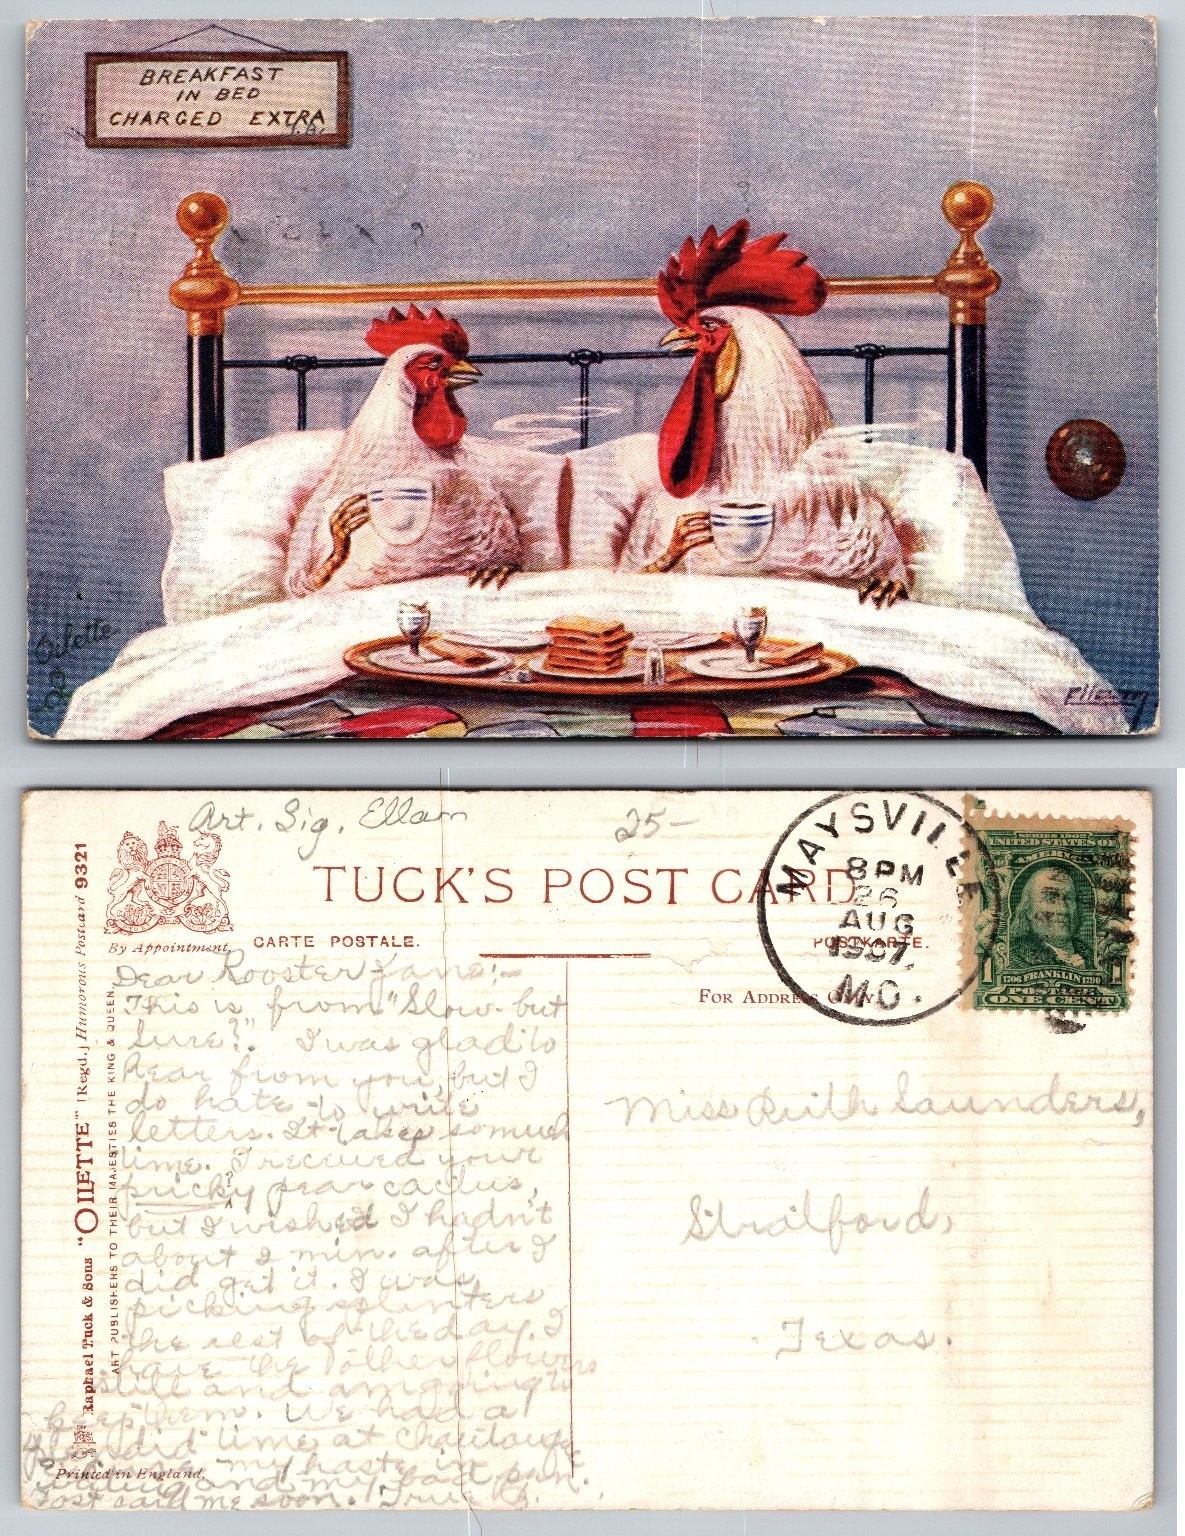 BREAKFAST
IN BED
CHARGED EXTRA
J.B.
Oilette
Ellam
Art. Sig. Ellam
25-
TUCK'S POST CARD
By Appointment.
CARTE POSTALE.
POSTKARTE.
FOR ADDRESS ONLY
MAYSVILLE
8 PM
26
AUG
1907
MO.
SERIES 1902
UNITED STATES OF
AMERICA
1706 FRANKLIN 1790
POSTAGE
1 ONE CENT 1
Raphael Tuck & Sons "OILETTE" [Regd.] Humorous Postcard 9321
ART PUBLISHERS TO THEIR MAJESTIES THE KING & QUEEN.
Printed in England.
Dear Rooster Jane:-
This is from "Slow but
Sure?" I was glad to
hear from you, but I
do hate to write
letters. It takes so much
time. I received your
pricky? pear cactus,
but I wished I hadn't
about 2 min. after I
did get it. I was
picking splinters
the rest of the day. I
have the other flowers
still and am going to
keep them. We had a
splendid time at
my haste in
and my bad pen.
Post card me soon. True B.
Miss Ruth Saunders,
Stratford,
Texas.